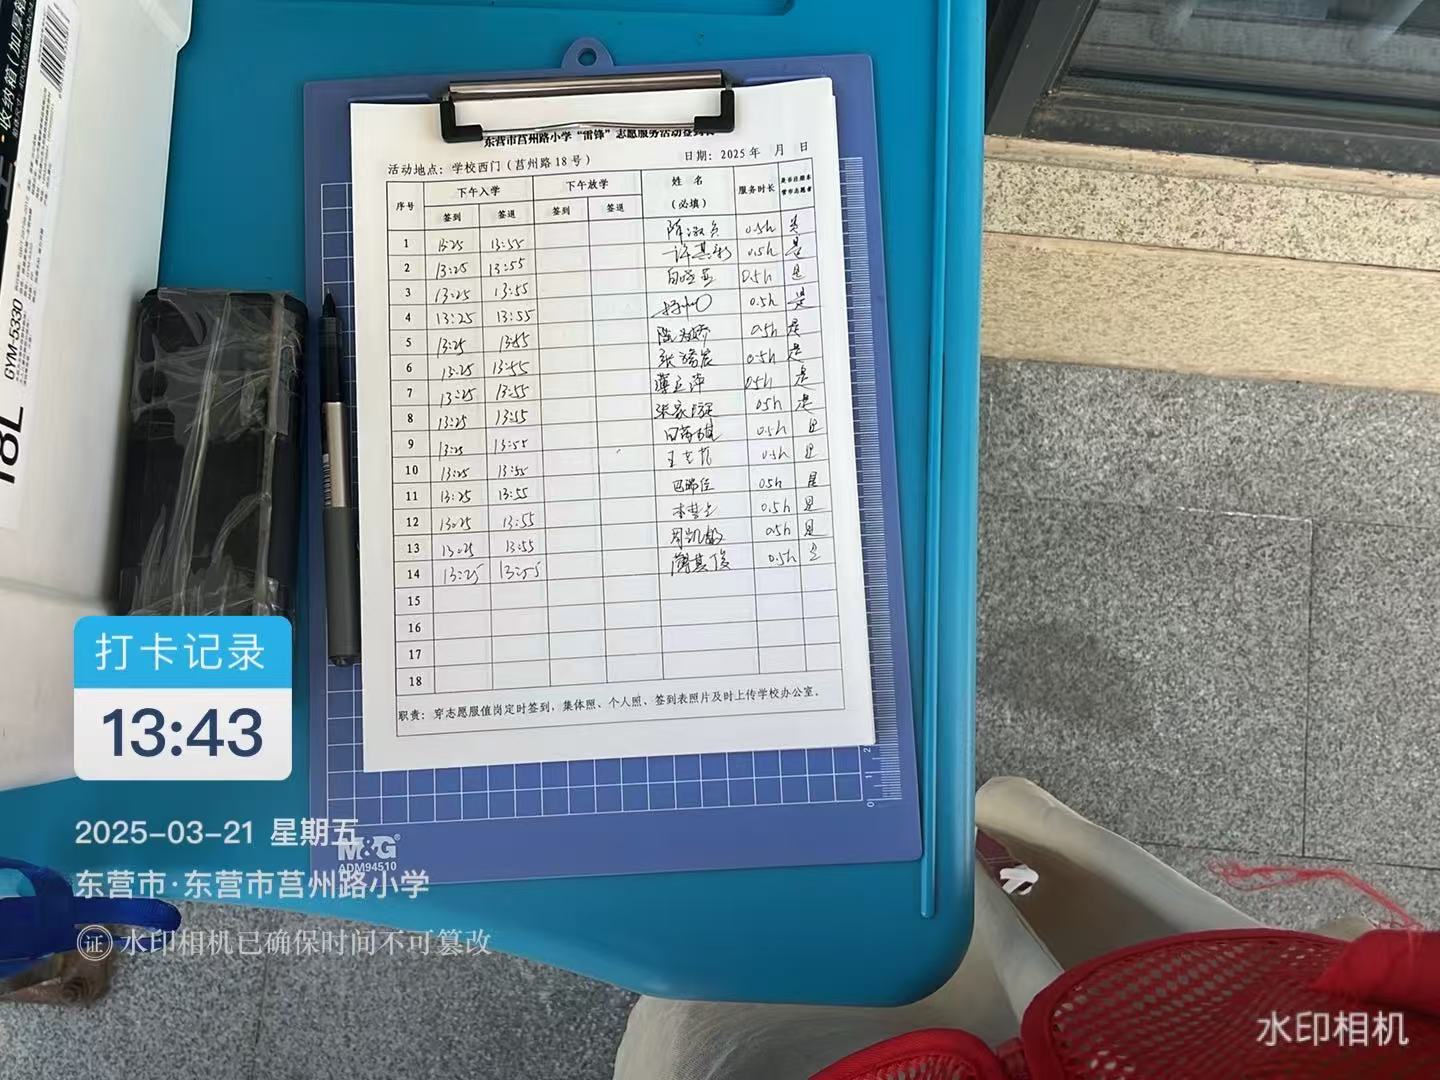 收纳箱(加厚箱
GYM-5330
18L
东营市莒州路小学“雷锋”志愿服务活动签到表
活动地点：学校西门（莒州路18号）
日期：2025年 月 日
序号 下午入学 下午放学 姓名（必填） 服务时长 是否注册东营市志愿者
签到 签退 签到 签退
1 13:25 13:55 0.5h 是
2 13:25 13:55 许其彬 0.5h 是
3 13:25 13:55 0.5h 是
4 13:25 13:55 0.5h 是
5 13:25 13:55 0.5h 是
6 13:25 13:55 0.5h 是
7 13:25 13:55 薄立萍 0.5h 是
8 13:25 13:55 0.5h 是
9 13:25 13:55 0.5h 是
10 13:25 13:55 0.5h 是
11 13:25 13:55 0.5h 是
12 13:25 13:55 0.5h 是
13 13:25 13:55 周凯敏 0.5h 是
14 13:25 13:55 0.5h 是
15
16
17
18
职责：穿志愿服值岗定时签到，集体照、个人照、签到表照片及时上传学校办公室。
M&G
ADM94510
打卡记录
13:43
2025-03-21 星期五
东营市·东营市莒州路小学
证 水印相机已确保时间不可篡改
水印相机